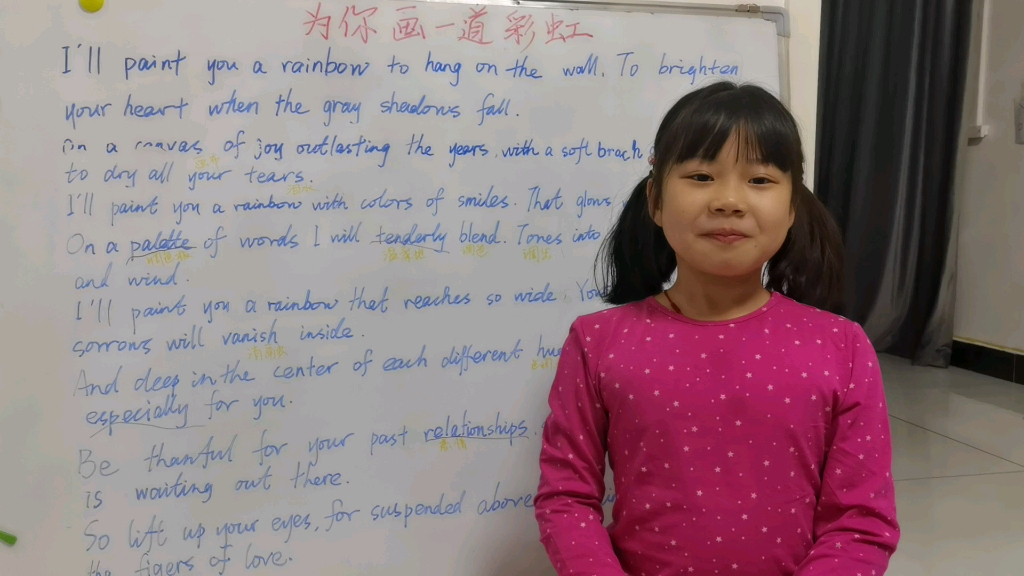 为你画一道彩虹
I'll paint you a rainbow to hang on the wall. To brighten
your heart when the gray shadows fall.
On a canvas of joy outlasting the years, with a soft brach
to dry all your tears.
I'll paint you a rainbow with colors of smiles. That glows
On a palette of words I will tenderly blend. Tones into
调色板
and wind.
I'll paint you a rainbow that reaches so wide. You
sorrows will vanish inside.
And deep in the center of each different hue
especially for you.
Be thanful for your past relationships.
is waiting out there.
So lift up your eyes, for suspended above
the figers of love.